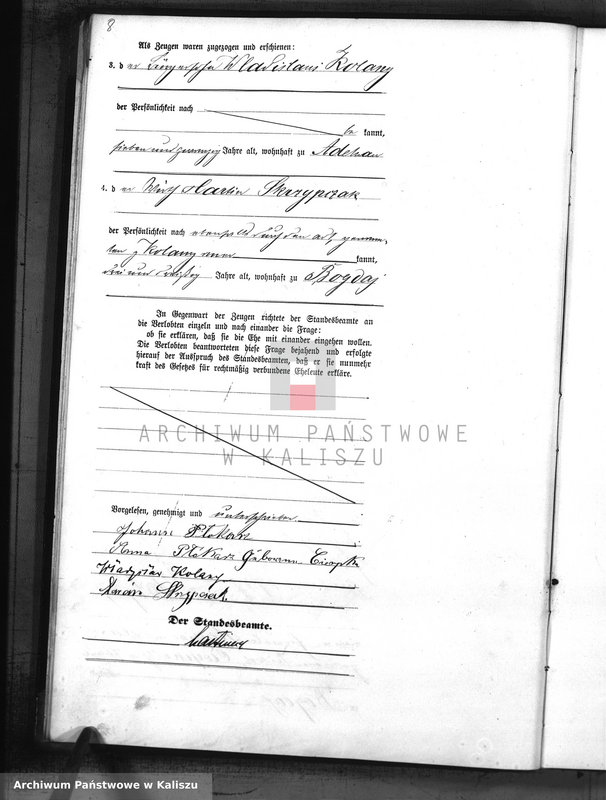 8
Als Zeugen waren zugezogen und erschienen:
3. d er Bürgersohn Wladislaus Kolany
der Persönlichkeit nach
be kannt,
sieben und zwanzig Jahre alt, wohnhaft zu Adelnau
4. d er Wirth Martin Skrzypczak
der Persönlichkeit nach ebenfalls durch den
Kolany kannt,
drei und dreißig Jahre alt, wohnhaft zu Bogdaj
In Gegenwart der Zeugen richtete der Standesbeamte an
die Verlobten einzeln und nach einander die Frage:
ob sie erklären, daß sie die Ehe mit einander eingehen wollen.
Die Verlobten beantworteten diese Frage bejahend und erfolgte
hierauf der Ausspruch des Standesbeamten, daß er sie nunmehr
kraft des Gesetzes für rechtmäßig verbundene Eheleute erkläre.
ARCHIWUM PAŃSTWOWE
W KALISZU
Vorgelesen, genehmigt und unterschrieben
Johann
Anna geborene
Władysław Kolany
Skrzypczak
Der Standesbeamte.
Archiwum Państwowe w Kaliszu